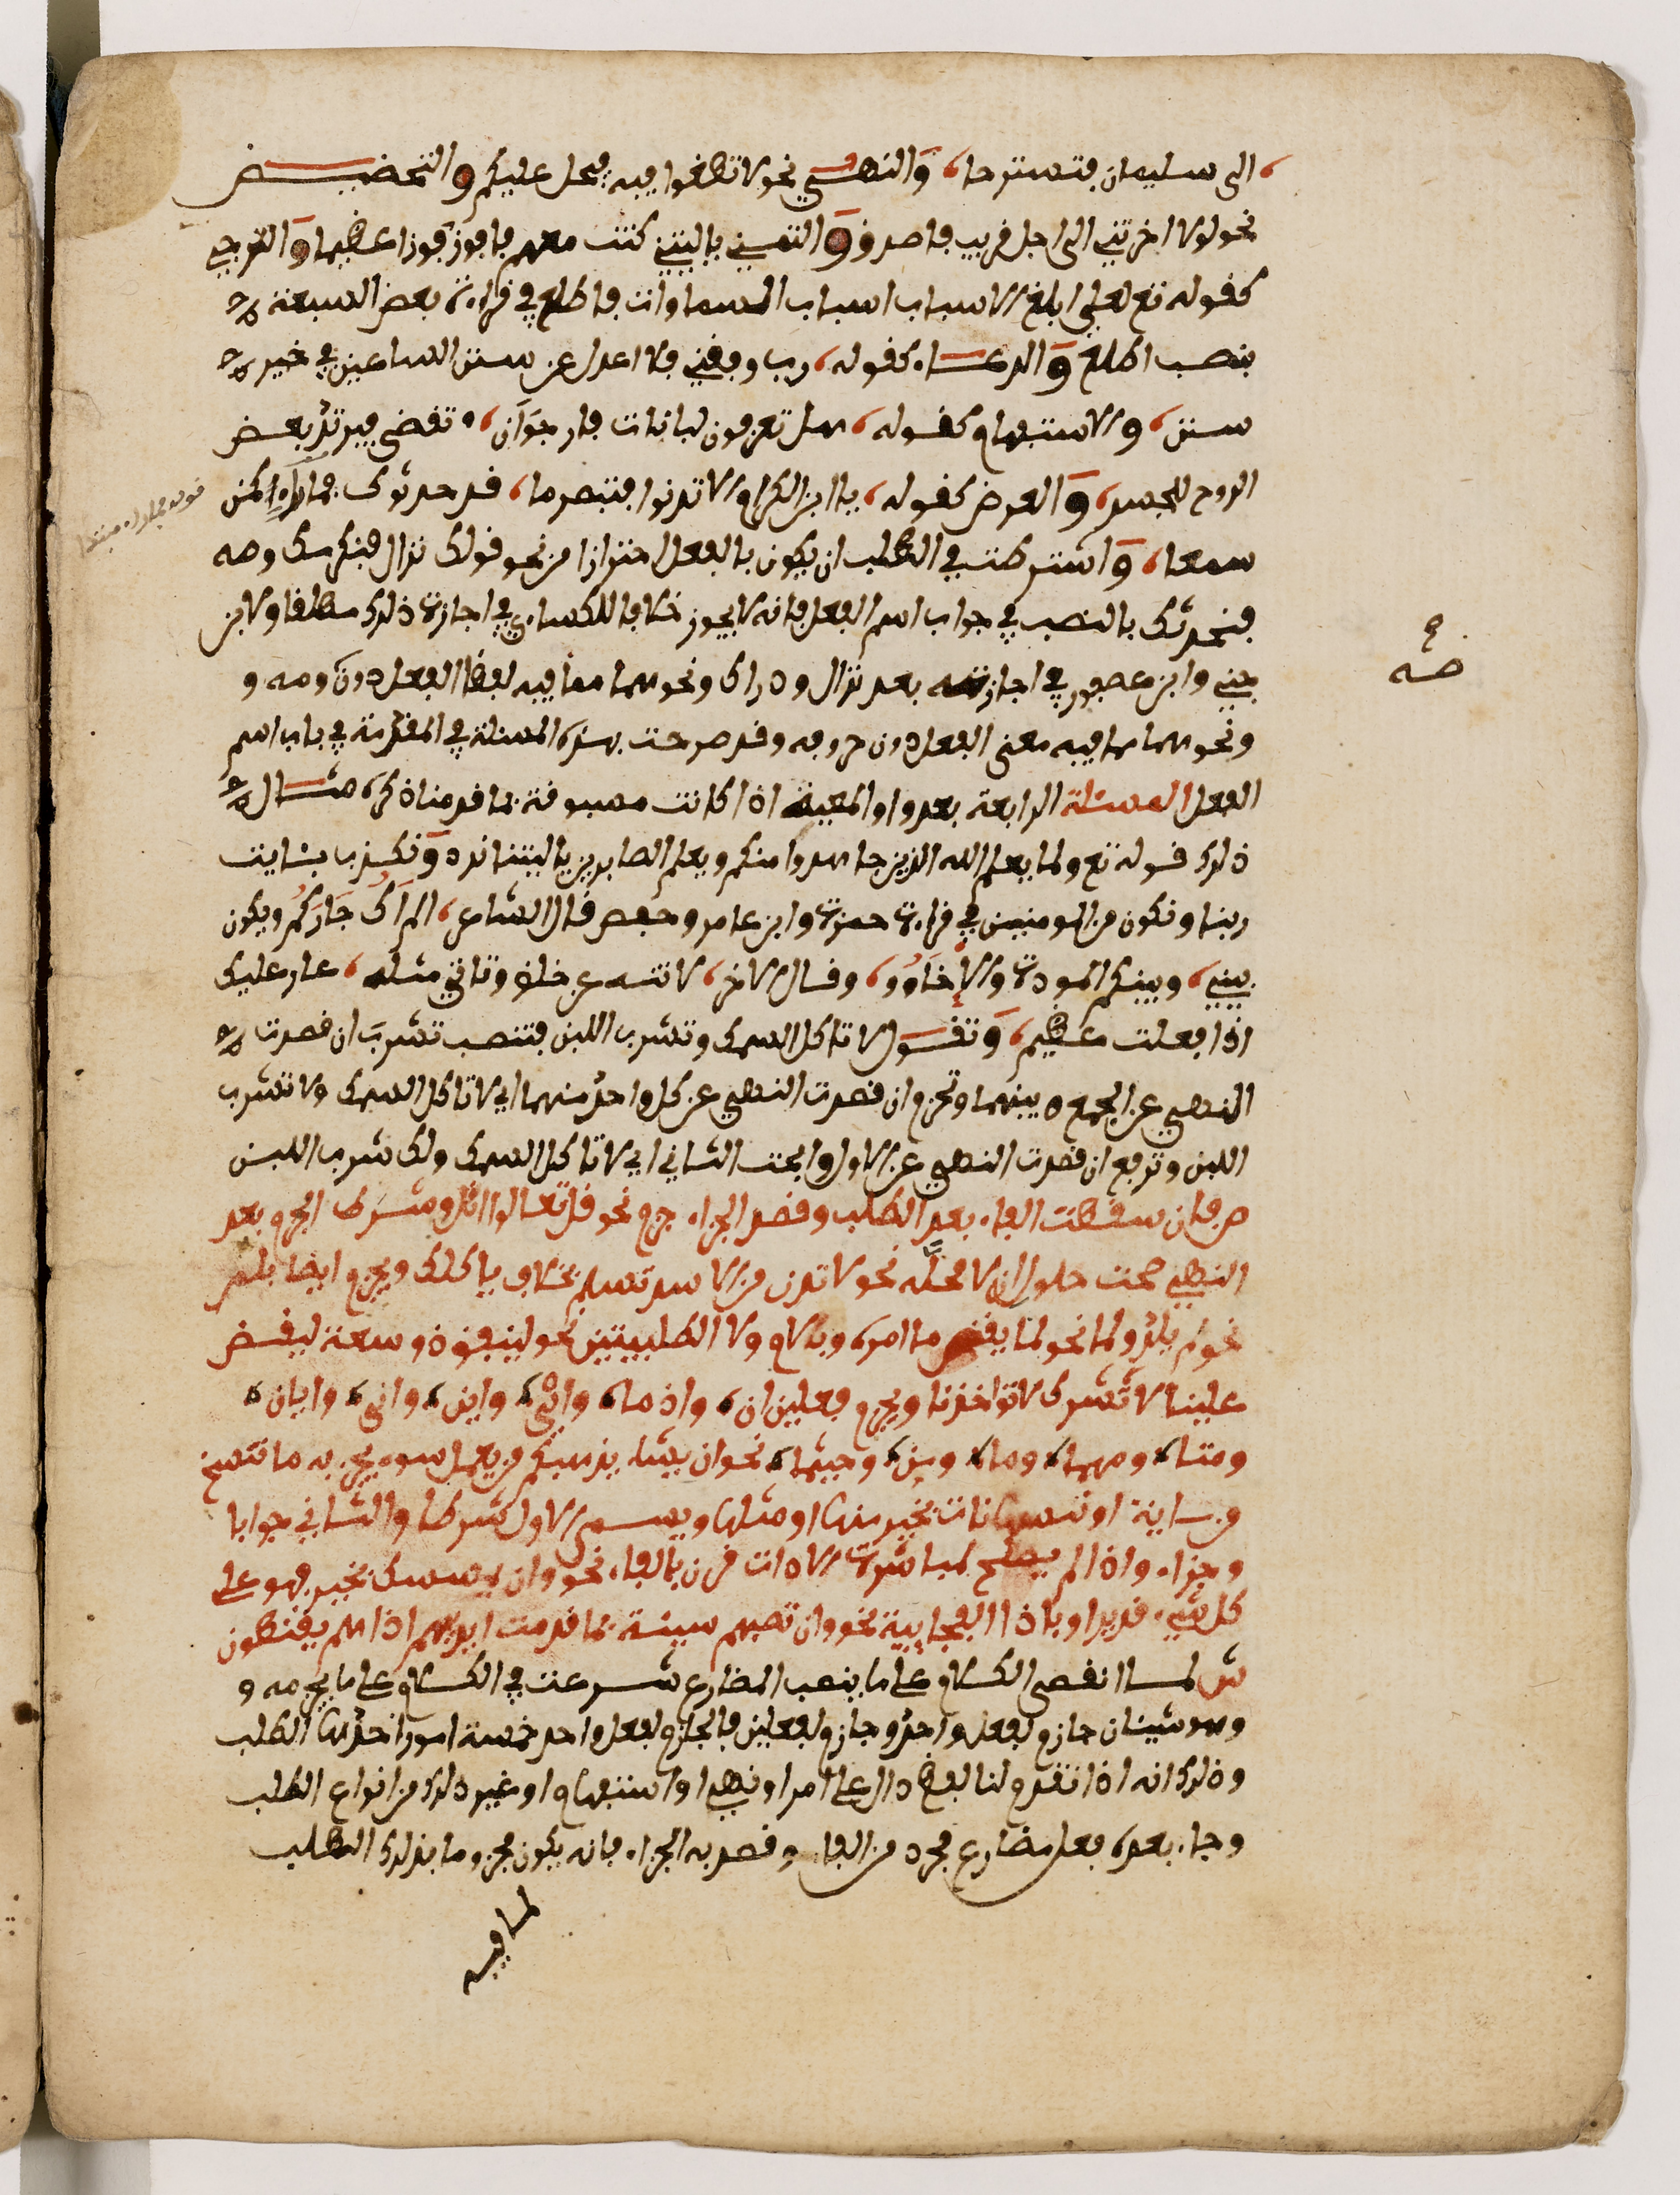 الى سليمان فتستريحا، والنهي نحو لا تطغوا فيه فيحل عليكم والتحضيض
نحو لولا اخرتني الى اجل قريب فاصدق والتمني ياليتني كنت معهم فافوز فوزا عظيما والترجي
كقوله تع لعلي ابلغ الاسباب اسباب السماوات فاطلع في قراءة بعض السبعة
بنصب اطلع والدعاء كقوله، رب وفقني فلا اعدل عن سنن الساعين في خير
سنن، والاستفهام كقوله، هل تعرفون لبانات فارجو ان، تقضى فيرتد بعض
الروح للجسد، والعرض كقوله، يا ابن الكرام الا تدنوا فتبصر ما، قد حدثوك فما راء كمن
سمعا، واشترطت في الطلب ان يكون بالفعل احترازا من نحو قولك نزال فنكرمك وصه
فنحدثك بالنصب في جواب اسم الفعل فانه لا يجوز خلافا للكساءي في اجازة ذلك مطلقا ولابن
جني وابن عصفور في اجازته بعد نزال ودراك ونحوهما مما فيه لفظ الفعل دون ومه و
صه
ونحوهما مما فيه معنى الفعل دون حروفه وقد صرحت بهذه المسئلة في المقدمة في باب اسم
الفعل المسئلة الرابعة بعد واو المعية اذا كانت مسبوقة بما قدمنا ذكره مثال
ذلك قوله تع ولما يعلم الله الذين جاهدوا منكم ويعلم الصابرين ياليتنا نرد ونكذب بئايت
ربنا ونكون من المومنين في قراءة حمزة وابن عامر وحفص قال الشاعر، الم اك جاركم ويكون
بيني، وبينكم المودة والإخاء، وقال الاخر، لا تنه عن خلق وتاتي مثله، عار عليك
اذا فعلت عظيم، وتقول لا تاكل السمك وتشرب اللبن فتنصب تشرب ان قصدت
النهي عن الجمع بينهما وتجزم ان قصدت النهي عن كل واحد منهما اي لا تاكل السمك ولا تشرب
اللبن وترفع ان قصدت النهي عن الاول وابحت الثاني اي لا تاكل السمك ولك شرب اللبن
ص فان سقطت الفاء بعد الطلب وقصد الجزاء جزم نحو قل تعالوا اتل وشرط الجزم بعد
النهي صحت حلول ان لا محله نحو لا تدن من الاسد تسلم بخلاف ياكلك ويجزم ايضا بلم
نحو لم يلد ولما نحو لما يقض ما امره وباللام ولا الطلبيتين نحو لينفق ذو سعة ليقض
علينا لا تشرك لا تواخذنا ويجزم فعلين ان، واذ ما، واي، واين، وانى، وايان،
ومتا، ومهما، وما، ومن، وحيثما، نحو ان يشا يذهبكم من يعمل سوءا يجز به ما ننسخ
من ءاية او ننسها نات بخير منها او مثلها ويسمى الاول شرطا والثاني جوابا
وجزاء واذا لم يصلح لمباشرة الادات قرن بالفاء نحو وان يمسسك بخير فهو على
كل شيء قدير او باذا الفجايية نحو وان تصبهم سيئة بما قدمت ايديهم اذا هم يقنطون
ش لما انقضى الكلام على ما ينصب المضارع شرعت في الكلام على ما يجزمه و
وهو شيئان جازم لفعل واحد وجازم لفعلين فالجازم لفعل واحد خمسة امور احدها الطلب
وذلك انه اذا تقدم لنا لفظ دال على امر او نهي او استفهام او غير ذلك من انواع الطلب
وجاء بعده فعل مضارع مجرد من الفاء وقصد به الجزاء فانه يكون مجزوما بذلك الطلب
لما فيه